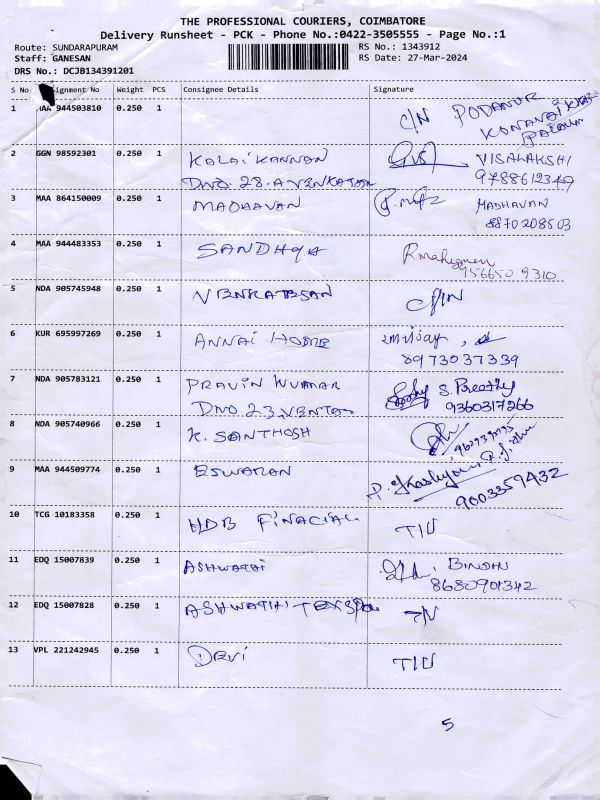 THE PROFESSIONAL COURIERS, COIMBATORE
Delivery Runsheet - PCK - Phone No.:0422-3505555 - Page No.:1
Route: SUNDARAPURAM RS No.: 1343912
Staff: GANESAN RS Date: 27-Mar-2024
DRS No.: DCJB134391201
S No ignment No Weight PCS Consignee Details Signature
1 944503810 0.250 1 C/N PODANUR
KONAVAI
2 GGN 98592301 0.250 1 KALAIKANNAN VISALAKSHI
DNO. 28.A VENKATSAN 9788612349
3 MAA 864150009 0.250 1 MADHAVAN MADHAVAN
8870208503
4 MAA 944483353 0.250 1 SANDHYA
956650 9310
5 NDA 905745948 0.250 1 VENKATESAN
6 KUR 695997269 0.250 1 ANNAI HOME
8973037339
7 NDA 905783121 0.250 1 PRAVIN KUMAR S. Preethy
DNO 23 9360317266
8 NDA 905740966 0.250 1 K. SANTHOSH
9 MAA 944509774 0.250 1 ESWARAN
9003359432
10 TCG 10183358 0.250 1 HDB FINACIAL
11 EDQ 15007839 0.250 1 ASHWATHI BINDHU
8680901342
12 EDQ 15007828 0.250 1 ASHWATHI
13 VPL 221242945 0.250 1 DEVI
5